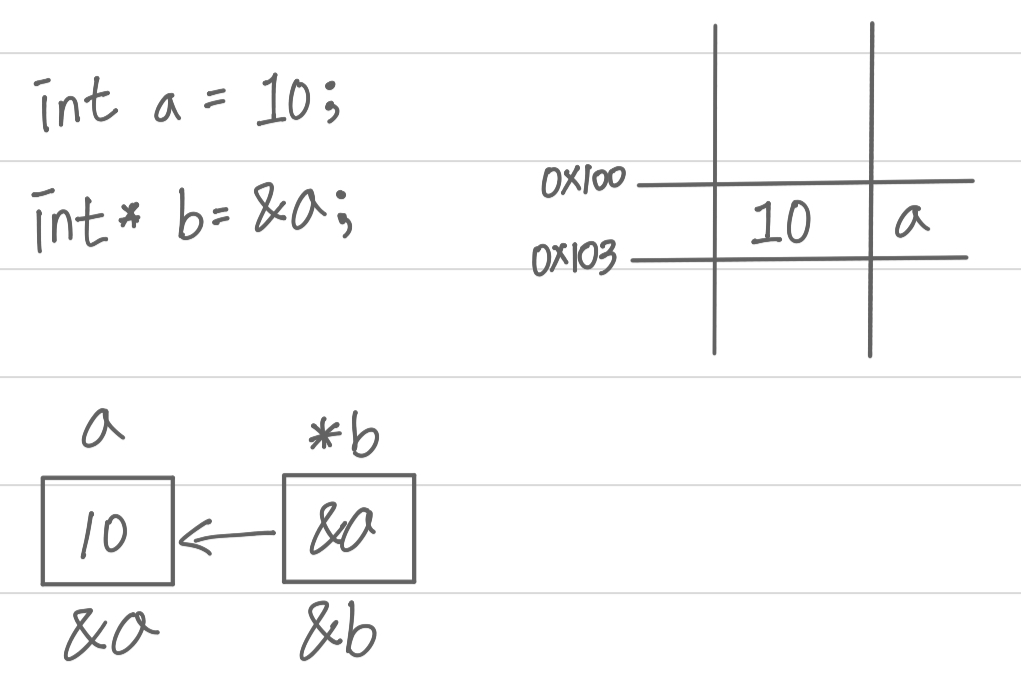 int a = 10;
int* b = &a;
0x100
10 a
0x103
a *b
10 &a
&a &b